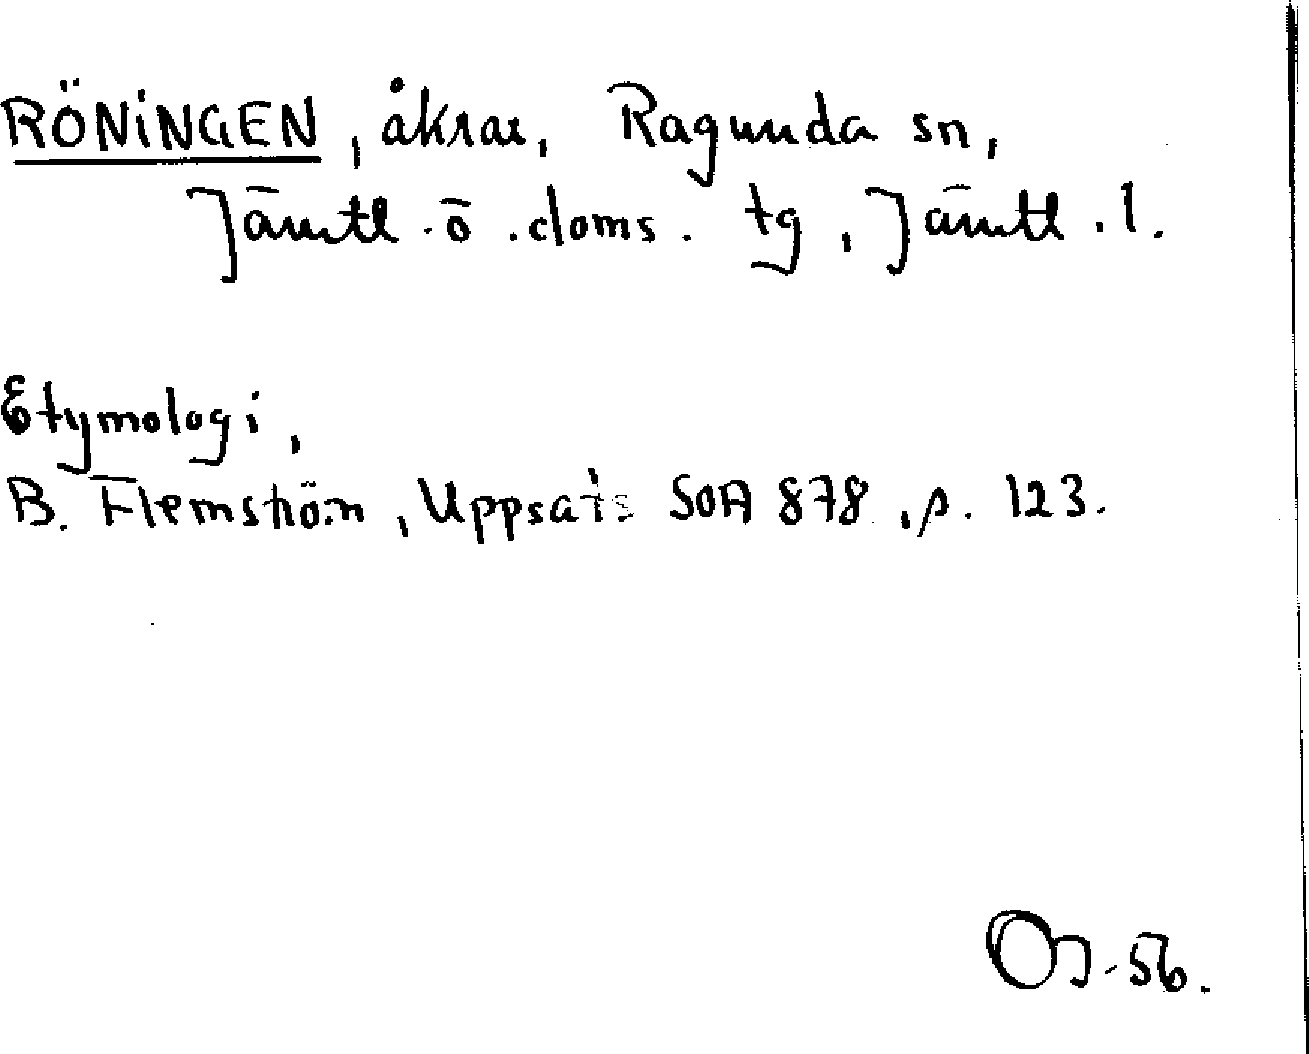 RÖNINGEN, åkrar, Ragunda sn,
Jämtl. ö. doms. tg, Jämtl. l.
Etymologi,
B. Flemström, Uppsats SOA 878, s. 123.
OJ-56.